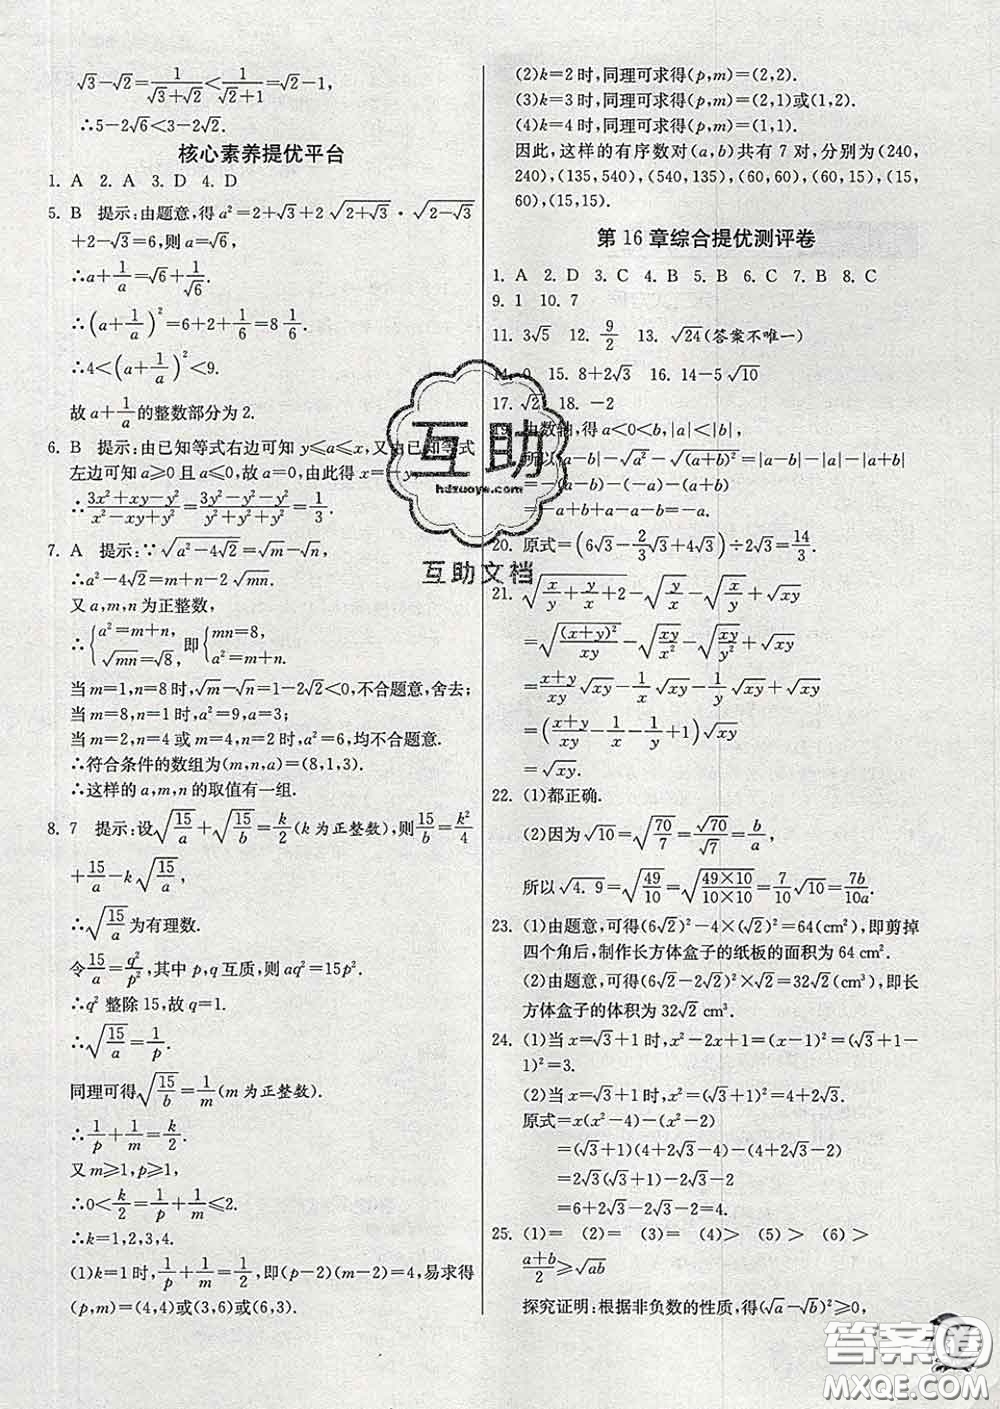 √3−√2=1/(√3+√2)<1/(√2+1)=√2−1,
∴5−2√6<3−2√2.
核心素养提优平台
1. A 2. A 3. D 4. D
5. B 提示:由题意,得a²=2+√3+2√(2+√3)·√(2−√3)
+2−√3=6,则a=√6,
∴a+1/a=√6+1/√6.
∴(a+1/a)²=6+2+1/6=8 1/6.
∴4<(a+1/a)²<9.
故a+1/a的整数部分为2.
6. B 提示:由已知等式右边可知y≤a≤x,又由已知等式
左边可知a≥0且a≤0,故a=0,由此得x=−y,
∴(3x²+xy−y²)/(x²−xy+y²)=(3y²−y²−y²)/(y²+y²+y²)=1/3.
7. A 提示:∵√(a²−4√2)=√m−√n,
∴a²−4√2=m+n−2√mn.
又a,m,n为正整数,
∴{a²=m+n, √mn=√8, 即{mn=8, a²=m+n.
当m=1,n=8时,√m−√n=1−2√2<0,不合题意,舍去;
当m=8,n=1时,a²=9,a=3;
当m=2,n=4或m=4,n=2时,a²=6,均不合题意.
∴符合条件的数组为(m,n,a)=(8,1,3).
∴这样的a,m,n的取值有一组.
8. 7 提示:设√(15/a)+√(15/b)=k/2(k为正整数),则15/b=k²/4
+15/a−k√(15/a)
∴√(15/a)为有理数.
令15/a=q²/p²,其中p,q互质,则aq²=15p².
∴q²整除15,故q=1.
∴√(15/a)=1/p.
同理可得√(15/b)=1/m(m为正整数).
∴1/p+1/m=k/2.
又m≥1,p≥1,
∴0<k/2=1/p+1/m≤2.
∴k=1,2,3,4.
(1)k=1时,1/p+1/m=1/2,即(p−2)(m−2)=4,易求得
(p,m)=(4,4)或(3,6)或(6,3).
(2)k=2时,同理可求得(p,m)=(2,2).
(3)k=3时,同理可求得(p,m)=(2,1)或(1,2).
(4)k=4时,同理可求得(p,m)=(1,1).
因此,这样的有序数对(a,b)共有7对,分别为(240,
240),(135,540),(540,135),(60,60),(60,15),(15,
60),(15,15).
第16章综合提优测评卷
1. A 2. D 3. C 4. B 5. B 6. C 7. B 8. C
9. 1 10. 7
11. 3√5 12. 9/2 13. √24(答案不唯一)
14. 0 15. 8+2√3 16. 14−5√10
17. √2 18. −2
19. 由数轴,得a<0<b,|a|<|b|,
所以|a−b|−√a²−√(a+b)²=|a−b|−|a|−|a+b|
=b−a−(−a)−(a+b)
=b−a+a−a−b=−a.
20. 原式=(6√3−2/3√3+4√3)÷2√3=14/3.
21. √(x/y+y/x+2)−√(y/x)−√(x/y)+√xy
=√((x+y)²/xy)−√(xy/x²)−√(xy/y²)+√xy
=(x+y)/xy √xy−1/x √xy−1/y √xy+√xy
=((x+y)/xy−1/x−1/y+1)√xy
=√xy.
22. (1)都正确.
(2)因为√10=√(70/7)=√70/√7=b/a,
所以√4.9=√(49/10)=√((49×10)/(10×10))=7/10 √10=7b/10a.
23. (1)由题意,可得(6√2)²−4×(√2)²=64(cm²),即剪掉
四个角后,制作长方体盒子的纸板的面积为64 cm².
(2)由题意,可得(6√2−2√2)²×√2=32√2(cm³),即长
方体盒子的体积为32√2 cm³.
24. (1)当x=√3+1时,x²−2x+1=(x−1)²=(√3+1−
1)²=3.
(2)当x=√3+1时,x²=(√3+1)²=4+2√3.
原式=x(x²−4)−(x²−2)
=(√3+1)(4+2√3−4)−(4+2√3−2)
=2√3(√3+1)−2√3−2
=6+2√3−2√3−2=4.
25. (1)= (2)= (3)= (4)> (5)> (6)>
(a+b)/2≥√ab
探究证明:根据非负数的性质,得(√a−√b)²≥0,
互助
hdzuoye.com
互助文档
答案圈
MXQE.COM